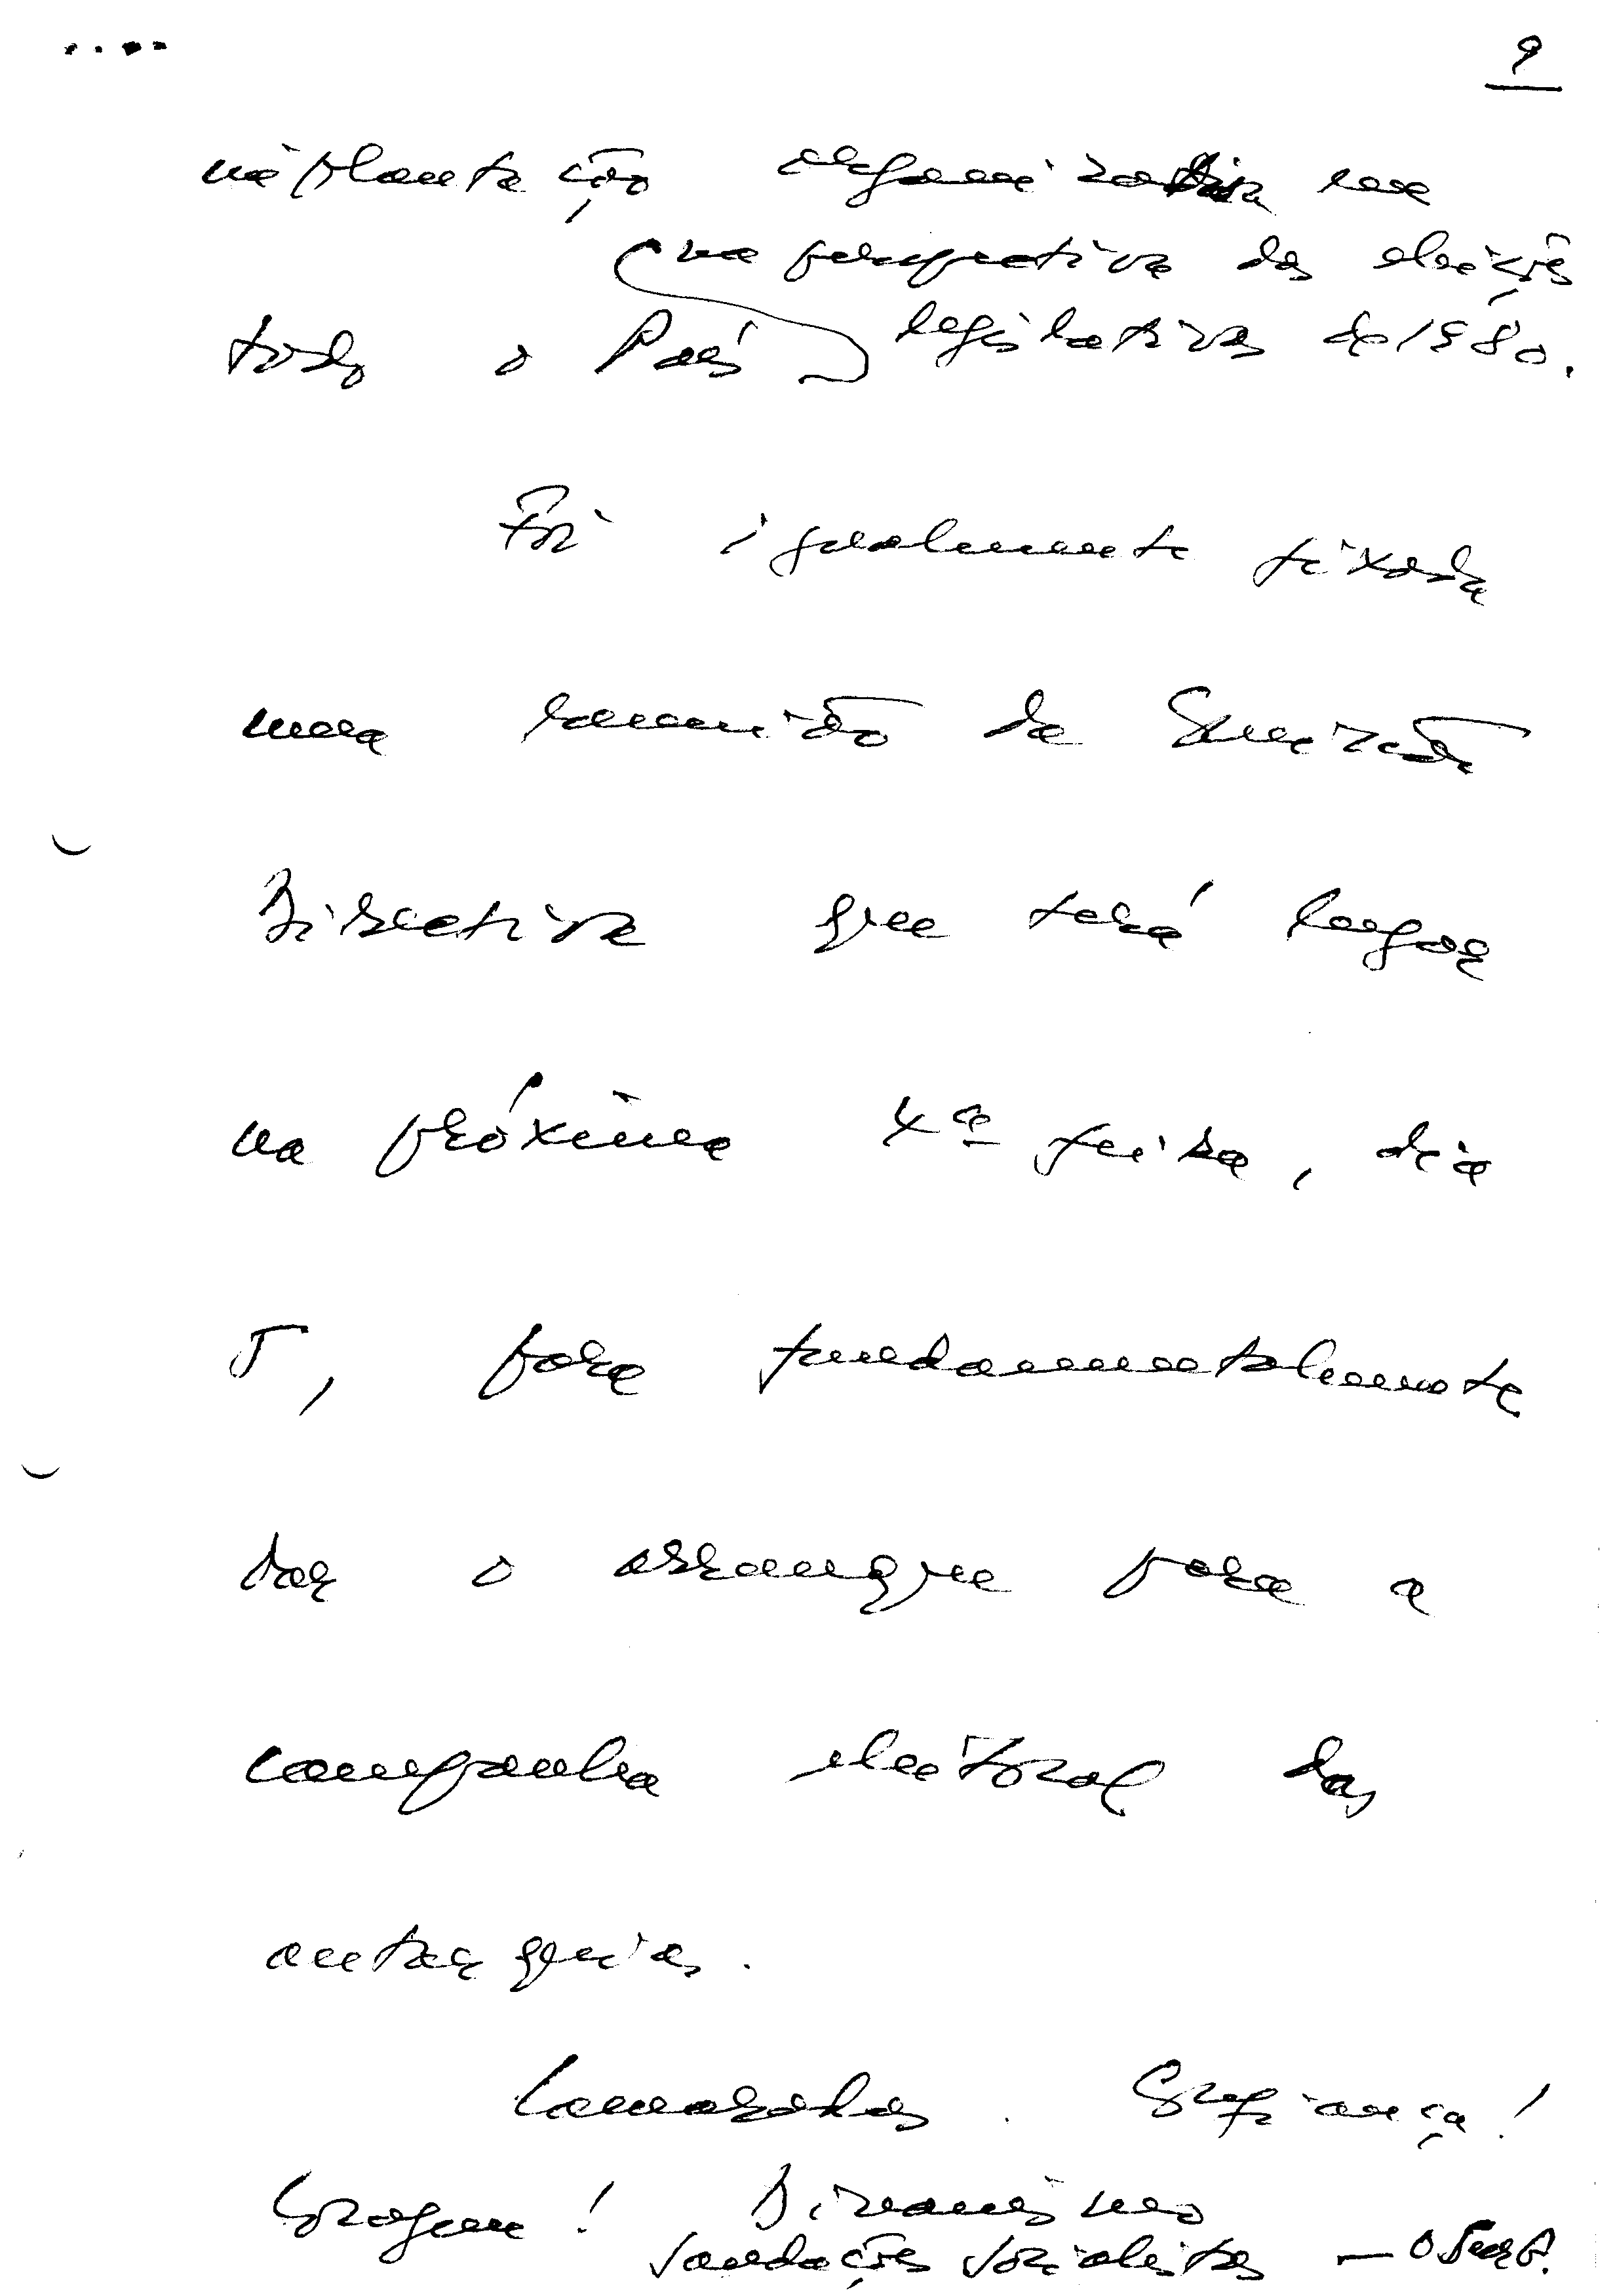 9
implantação organizativa em
na perspectiva das eleições
legislativas de 1980.
todo o País
Foi igualmente fixada
uma reunião da Comissão
Directiva que terá lugar
na próxima 4ª feira, dia
5, para fundamentalmente
dar o arranque para a
campanha eleitoral das
autarquias.
Camaradas. Confiança!
Coragem! Dinamismo
Saudações Socialistas —